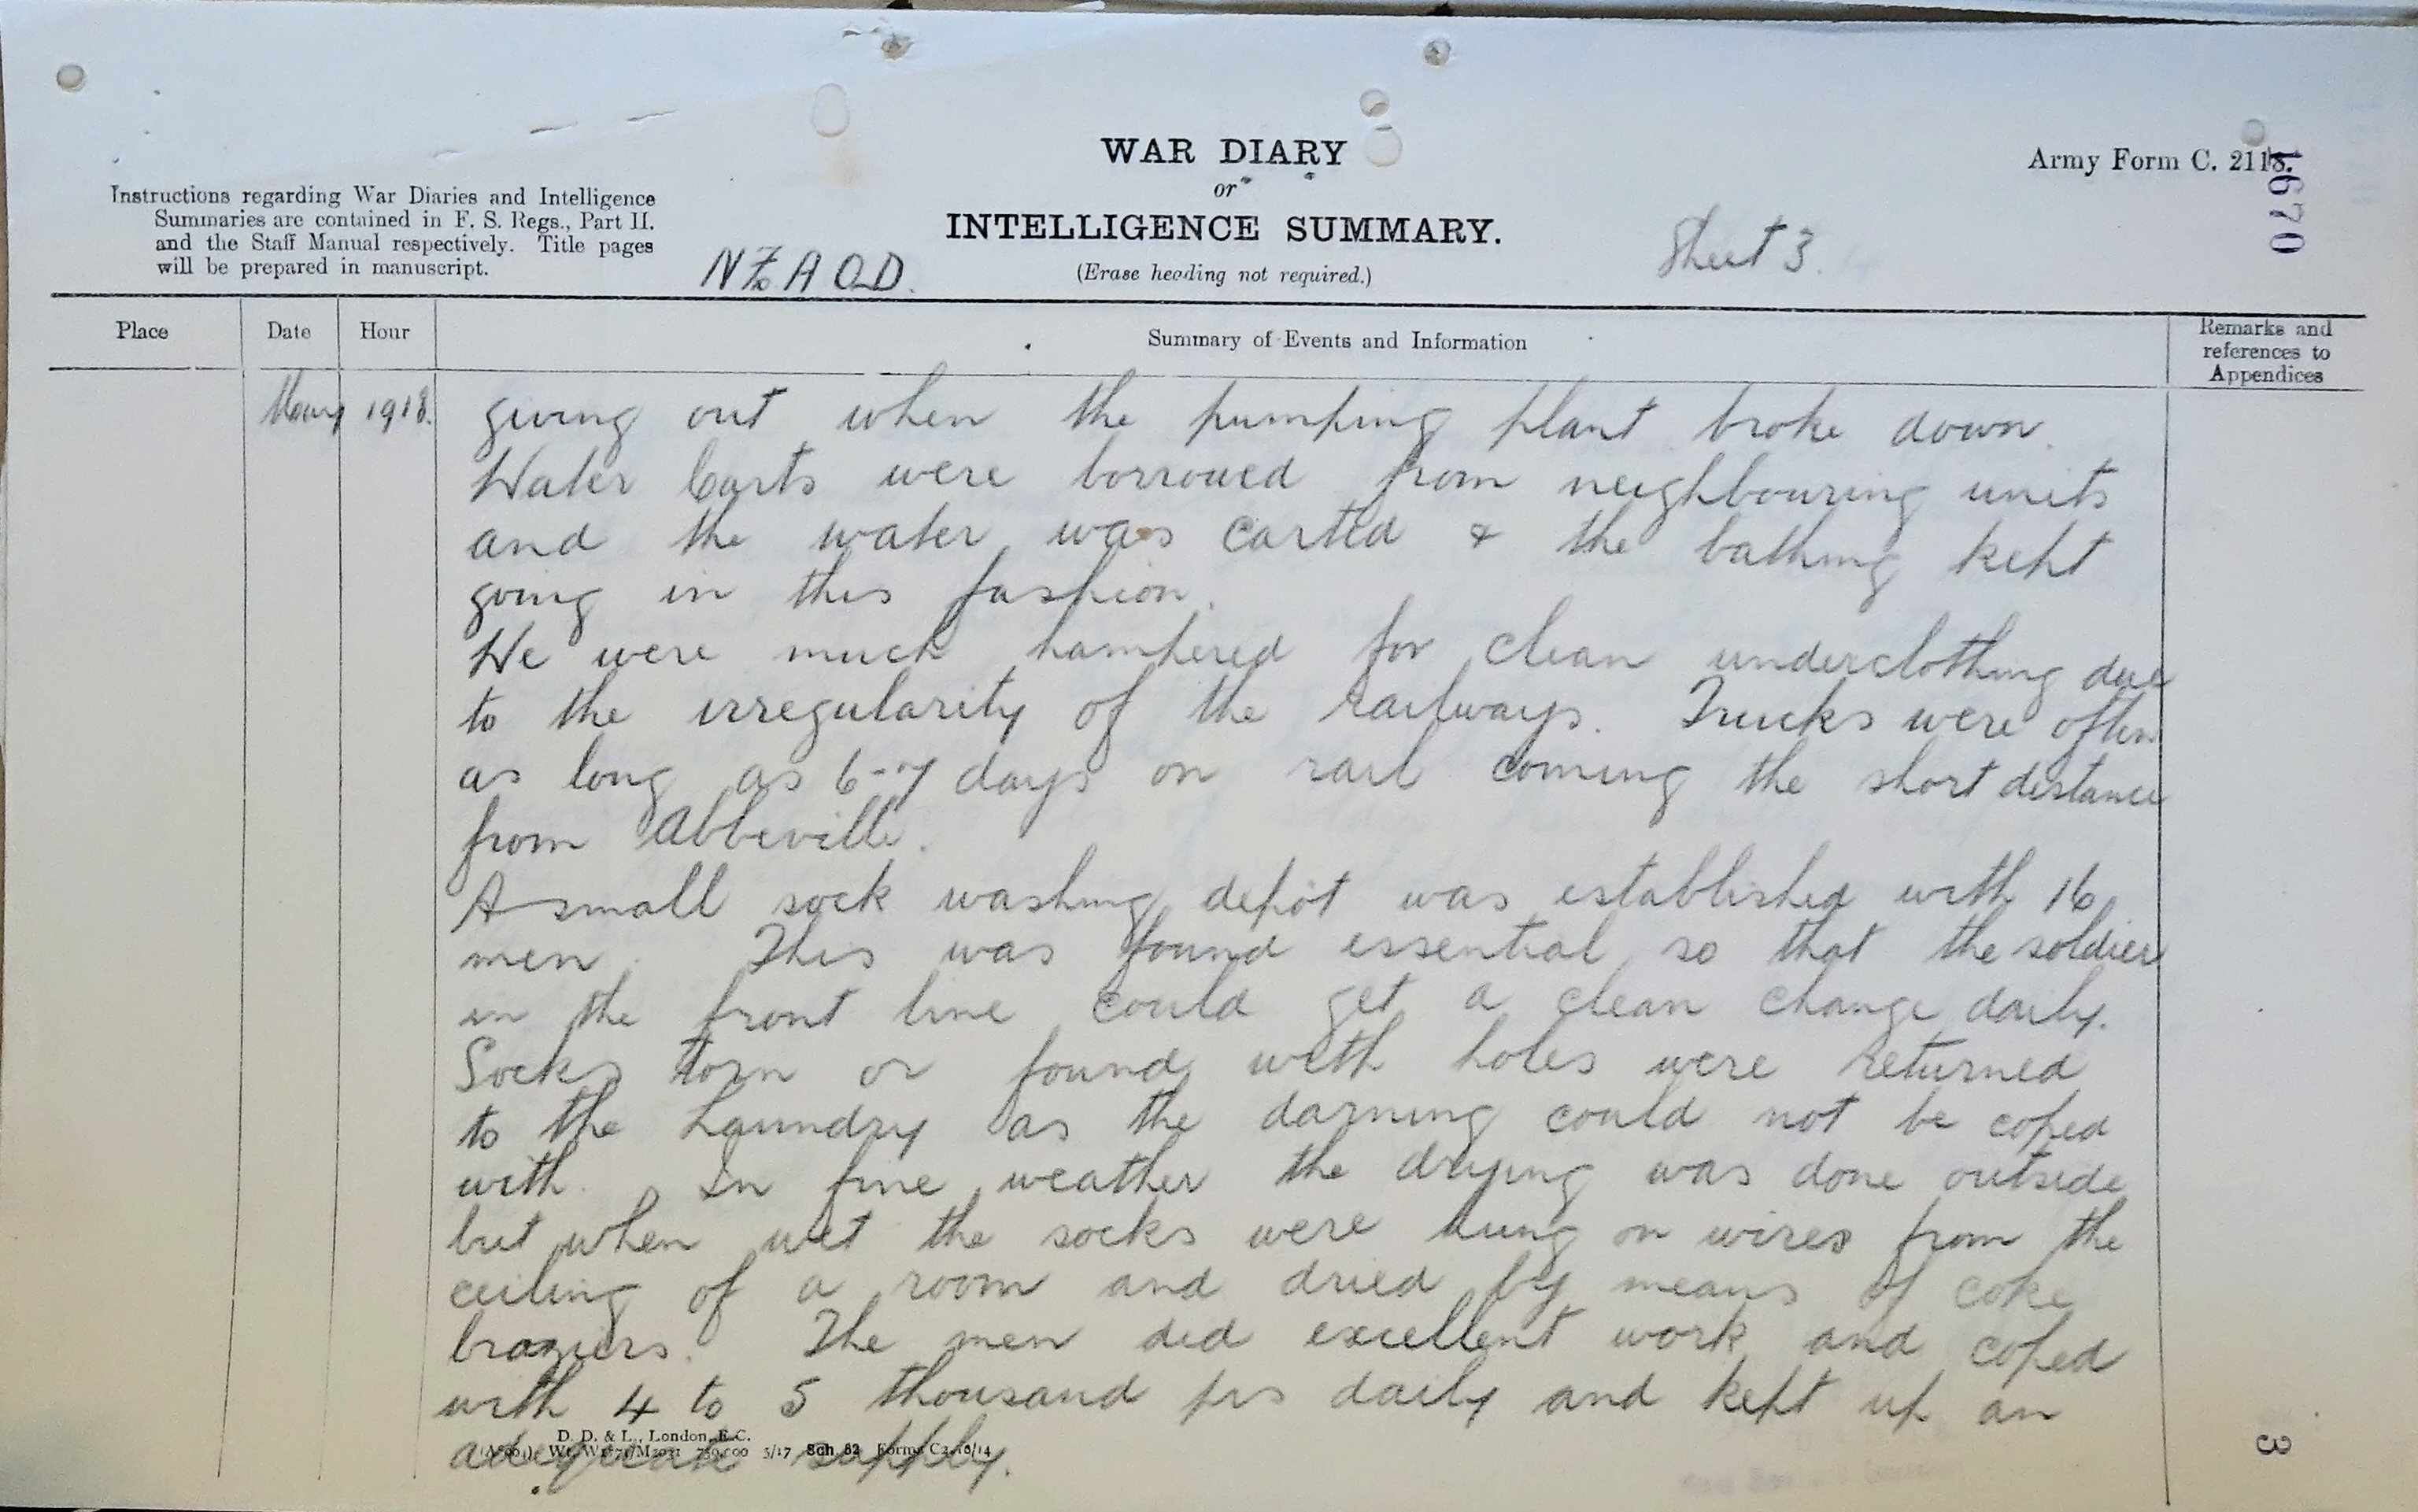 WAR DIARY
or
INTELLIGENCE SUMMARY.
(Erase heading not required.)
Army Form C. 2118.
1670
Instructions regarding War Diaries and Intelligence
Summaries are contained in F. S. Regs., Part II.
and the Staff Manual respectively. Title pages
will be prepared in manuscript.
NZAOD.
Sheet 3.
Place Date Hour Summary of Events and Information Remarks and
references to
Appendices
May 1918. giving out when the pumping plant broke down.
Water Carts were borrowed from neighbouring units
and the water was carted & the bathing kept
going in this fashion.
We were much hampered for clean underclothing due
to the irregularity of the railways. Trucks were often
as long as 6-7 days on rail coming the short distance
from Abbeville.
A small sock washing depôt was established with 16
men. This was found essential so that the soldier
in the front line could get a clean change daily.
Socks torn or found with holes were returned
to the Laundry as the darning could not be coped
with. In fine weather the drying was done outside
but when wet the socks were hung on wires from the
ceiling of a room and dried by means of coke
braziers. The men did excellent work and coped
with 4 to 5 thousand prs daily and kept up an
adequate supply.
D. D. & L., London, E.C.
750,000 5/17 Sch. 82 Forms C2118/14
3